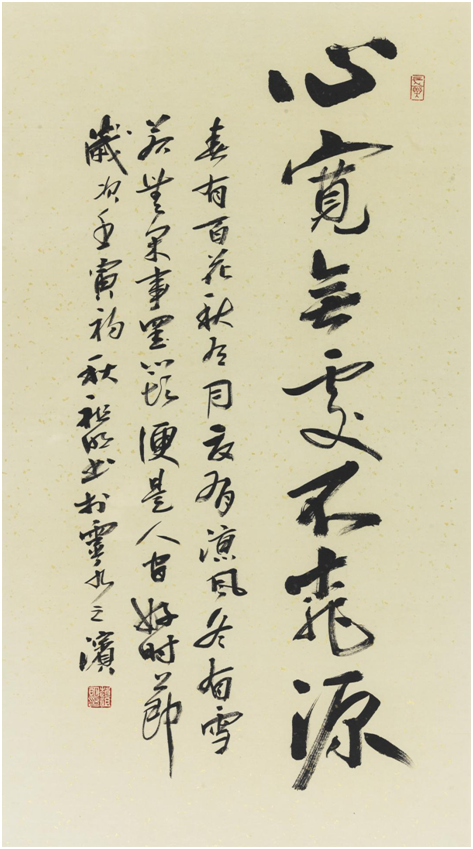 心寬無處不桃源
春有百花秋有月夏有涼風冬有雪
若無閑事罣心頭便是人間好时節
歲次壬寅初秋書於靈水之濱